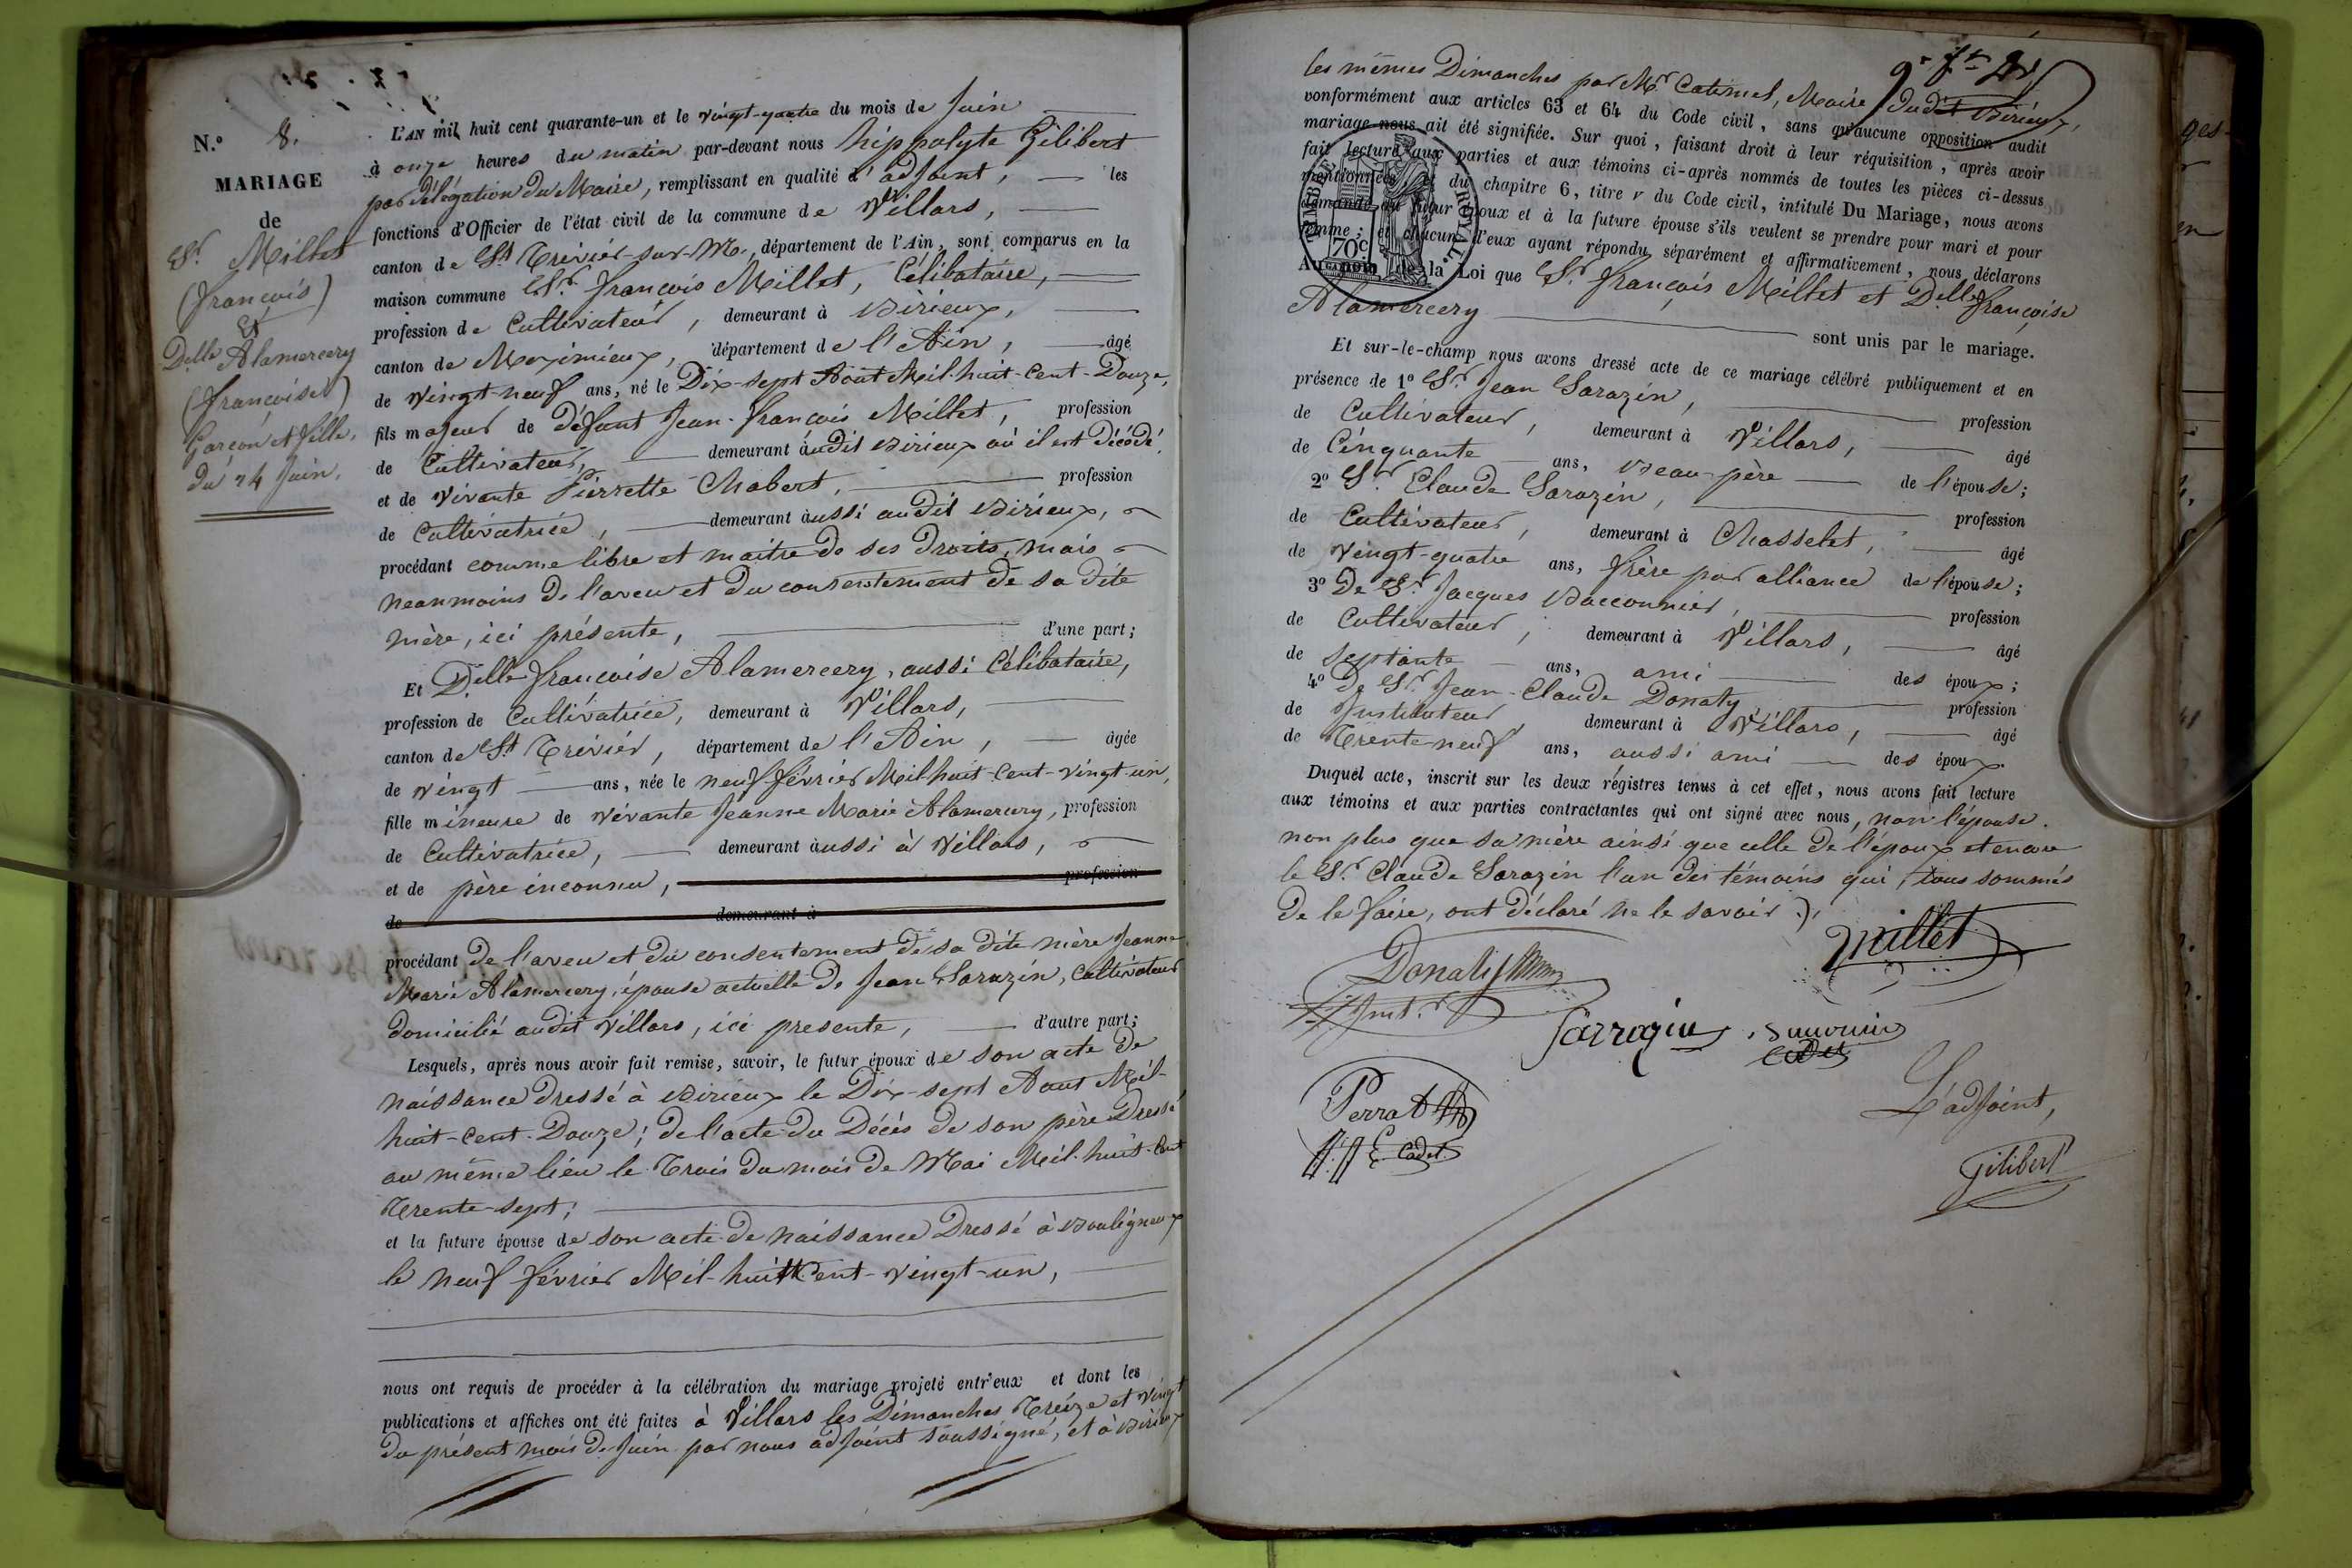 N.º 8.
MARIAGE
de
Sr. Millet
(françois)
Et
Delle Alamercery
(françoise)
Garçon et fille.
du 24 Juin.
L'AN mil huit cent quarante-un et le vingt-quatre du mois de Juin
à onze heures du matin par-devant nous hippolyte Gilibert
par délégation du Maire, remplissant en qualité d'adjoint, les
fonctions d'Officier de l'état civil de la commune de Villars,
canton de St Trivier-sur-M., département de l'Ain, sont comparus en la
maison commune Sr. françois Millet, Célibataire,
profession de Cultivateur, demeurant à Birieux,
canton de Meximieux, département de l'Ain, âgé
de vingt-neuf ans, né le Dix-sept Août Mil-huit-Cent-Douze,
fils majeur de défunt Jean-françois Millet, profession
de Cultivateur, demeurant audit Birieux où il est décédé,
et de vivante Pierrette Chabert, profession
de Cultivatrice, demeurant aussi audit Birieux,
procédant comme libre et maitre de ses droits, mais
neanmoins de l'aveu et du consentement de sa dite
mère, ici présente, d'une part;
Et Delle françoise Alamercery, aussi Célibataire,
profession de Cultivatrice, demeurant à Villars,
canton de St Trivier, département de l'Ain, âgée
de vingt ans, née le neuf février Mil-huit-Cent-vingt-un,
fille mineure de vivante Jeanne Marie Alamercery, profession
de Cultivatrice, demeurant aussi à Villars,
et de père inconnu, profession
de demeurant à
procédant de l'aveu et du consentement de sa dite mère Jeanne
Marie Alamercery, épouse actuelle de Jean Sarazin, Cultivateur
domicilié audit Villars, ici presente, d'autre part;
Lesquels, après nous avoir fait remise, savoir, le futur époux de son acte de
naissance dressé à Birieux le Dix-sept Aout Mil-
huit-Cent-Douze; de l'acte du Décès de son père Dressé
au même lieu le Trois du mois de Mai Mil-huit-Cent
Trente-sept;
et la future épouse de son acte de naissance Dressé à Bouligneux
le neuf février Mil-huit Cent-vingt-un,
nous ont requis de procéder à la célébration du mariage projeté entr'eux et dont les
publications et affiches ont été faites à Villars les Dimanches Treize et vingt
du présent mois de Juin par nous adjoint soussigné, et à Birieux
les mêmes Dimanches par Mr Catimel, Maire dudit Birieux,
conformément aux articles 63 et 64 du Code civil, sans qu'aucune opposition audit
mariage nous ait été signifiée. Sur quoi, faisant droit à leur réquisition, après avoir
fait lecture aux parties et aux témoins ci-après nommés de toutes les pièces ci-dessus
mentionnées et du chapitre 6, titre v du Code civil, intitulé Du Mariage, nous avons
demandé au futur époux et à la future épouse s'ils veulent se prendre pour mari et pour
femme; et chacun d'eux ayant répondu séparément et affirmativement, nous déclarons
Au nom de la Loi que Sr. françois Millet et Delle françoise
Alamercery sont unis par le mariage.
TIMBRE ROYAL.
70c
Et sur-le-champ nous avons dressé acte de ce mariage célébré publiquement et en
présence de 1º Sr. Jean Sarazin, profession
de Cultivateur, demeurant à Villars, âgé
de Cinquante ans, Beau-père de l'épouse;
2º Sr. Claude Sarazin, profession
de Cultivateur, demeurant à Chasselet, âgé
de vingt-quatre ans, frère par alliance de l'épouse;
3º De Sr. Jacques Bacconnier, profession
de Cultivateur, demeurant à Villars, âgé
de septante ans, ami des époux;
4º De Sr. Jean-Claude Donaty profession
de Instituteur, demeurant à Villars, âgé
de Trente neuf ans, aussi ami des époux.
Duquel acte, inscrit sur les deux régistres tenus à cet effet, nous avons fait lecture
aux témoins et aux parties contractantes qui ont signé avec nous, non l'épouse.
non plus que sa mère ainsi que celle de l'époux et encore
le Sr. Claude Sarazin l'un des témoins qui, tous sommés
de le faire, ont déclaré ne le savoir.
Millet
Donaty
Inst.r
Sarrazin
Perrat
Cadet
L'adjoint,
Gilibert